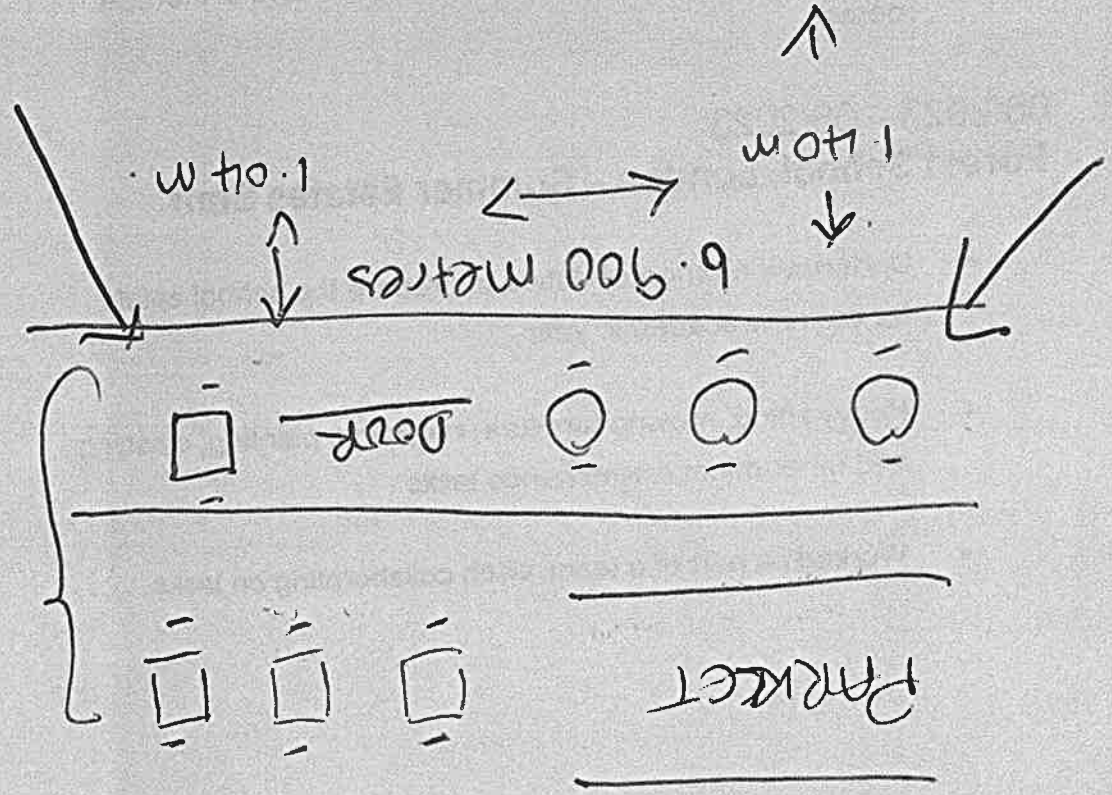 PARKLET
DOOR
6.900 metres
1.40 m
1.04 m